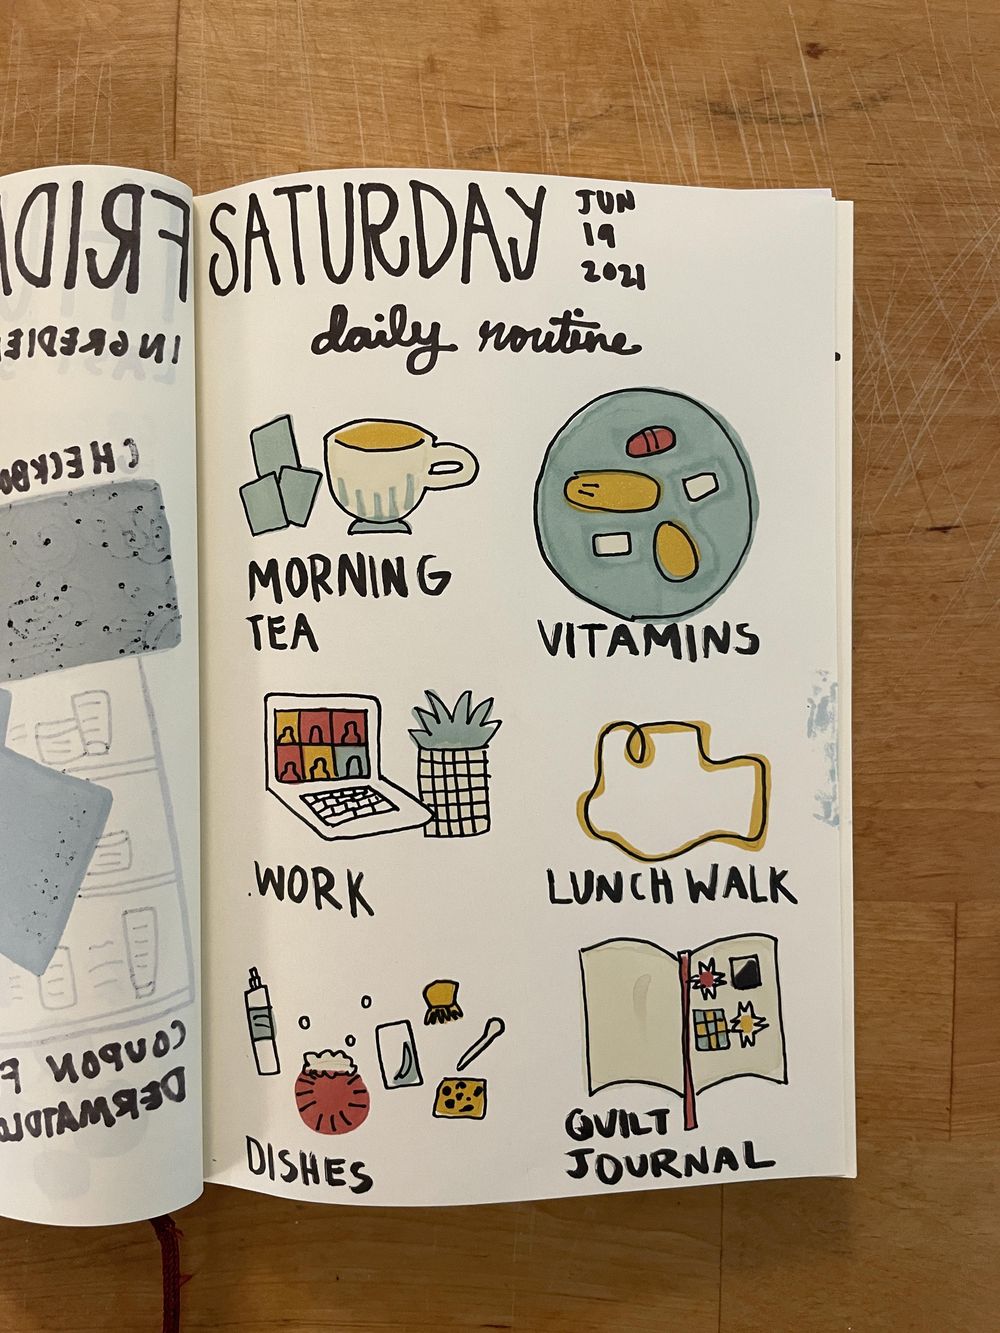 SATURDAY
JUN
19
2021
daily routine
MORNING
TEA
VITAMINS
WORK
LUNCH WALK
DISHES
QUILT
JOURNAL
FRIDA
INGREDIE
CHECKBO
COUPON F
DERMATOLO